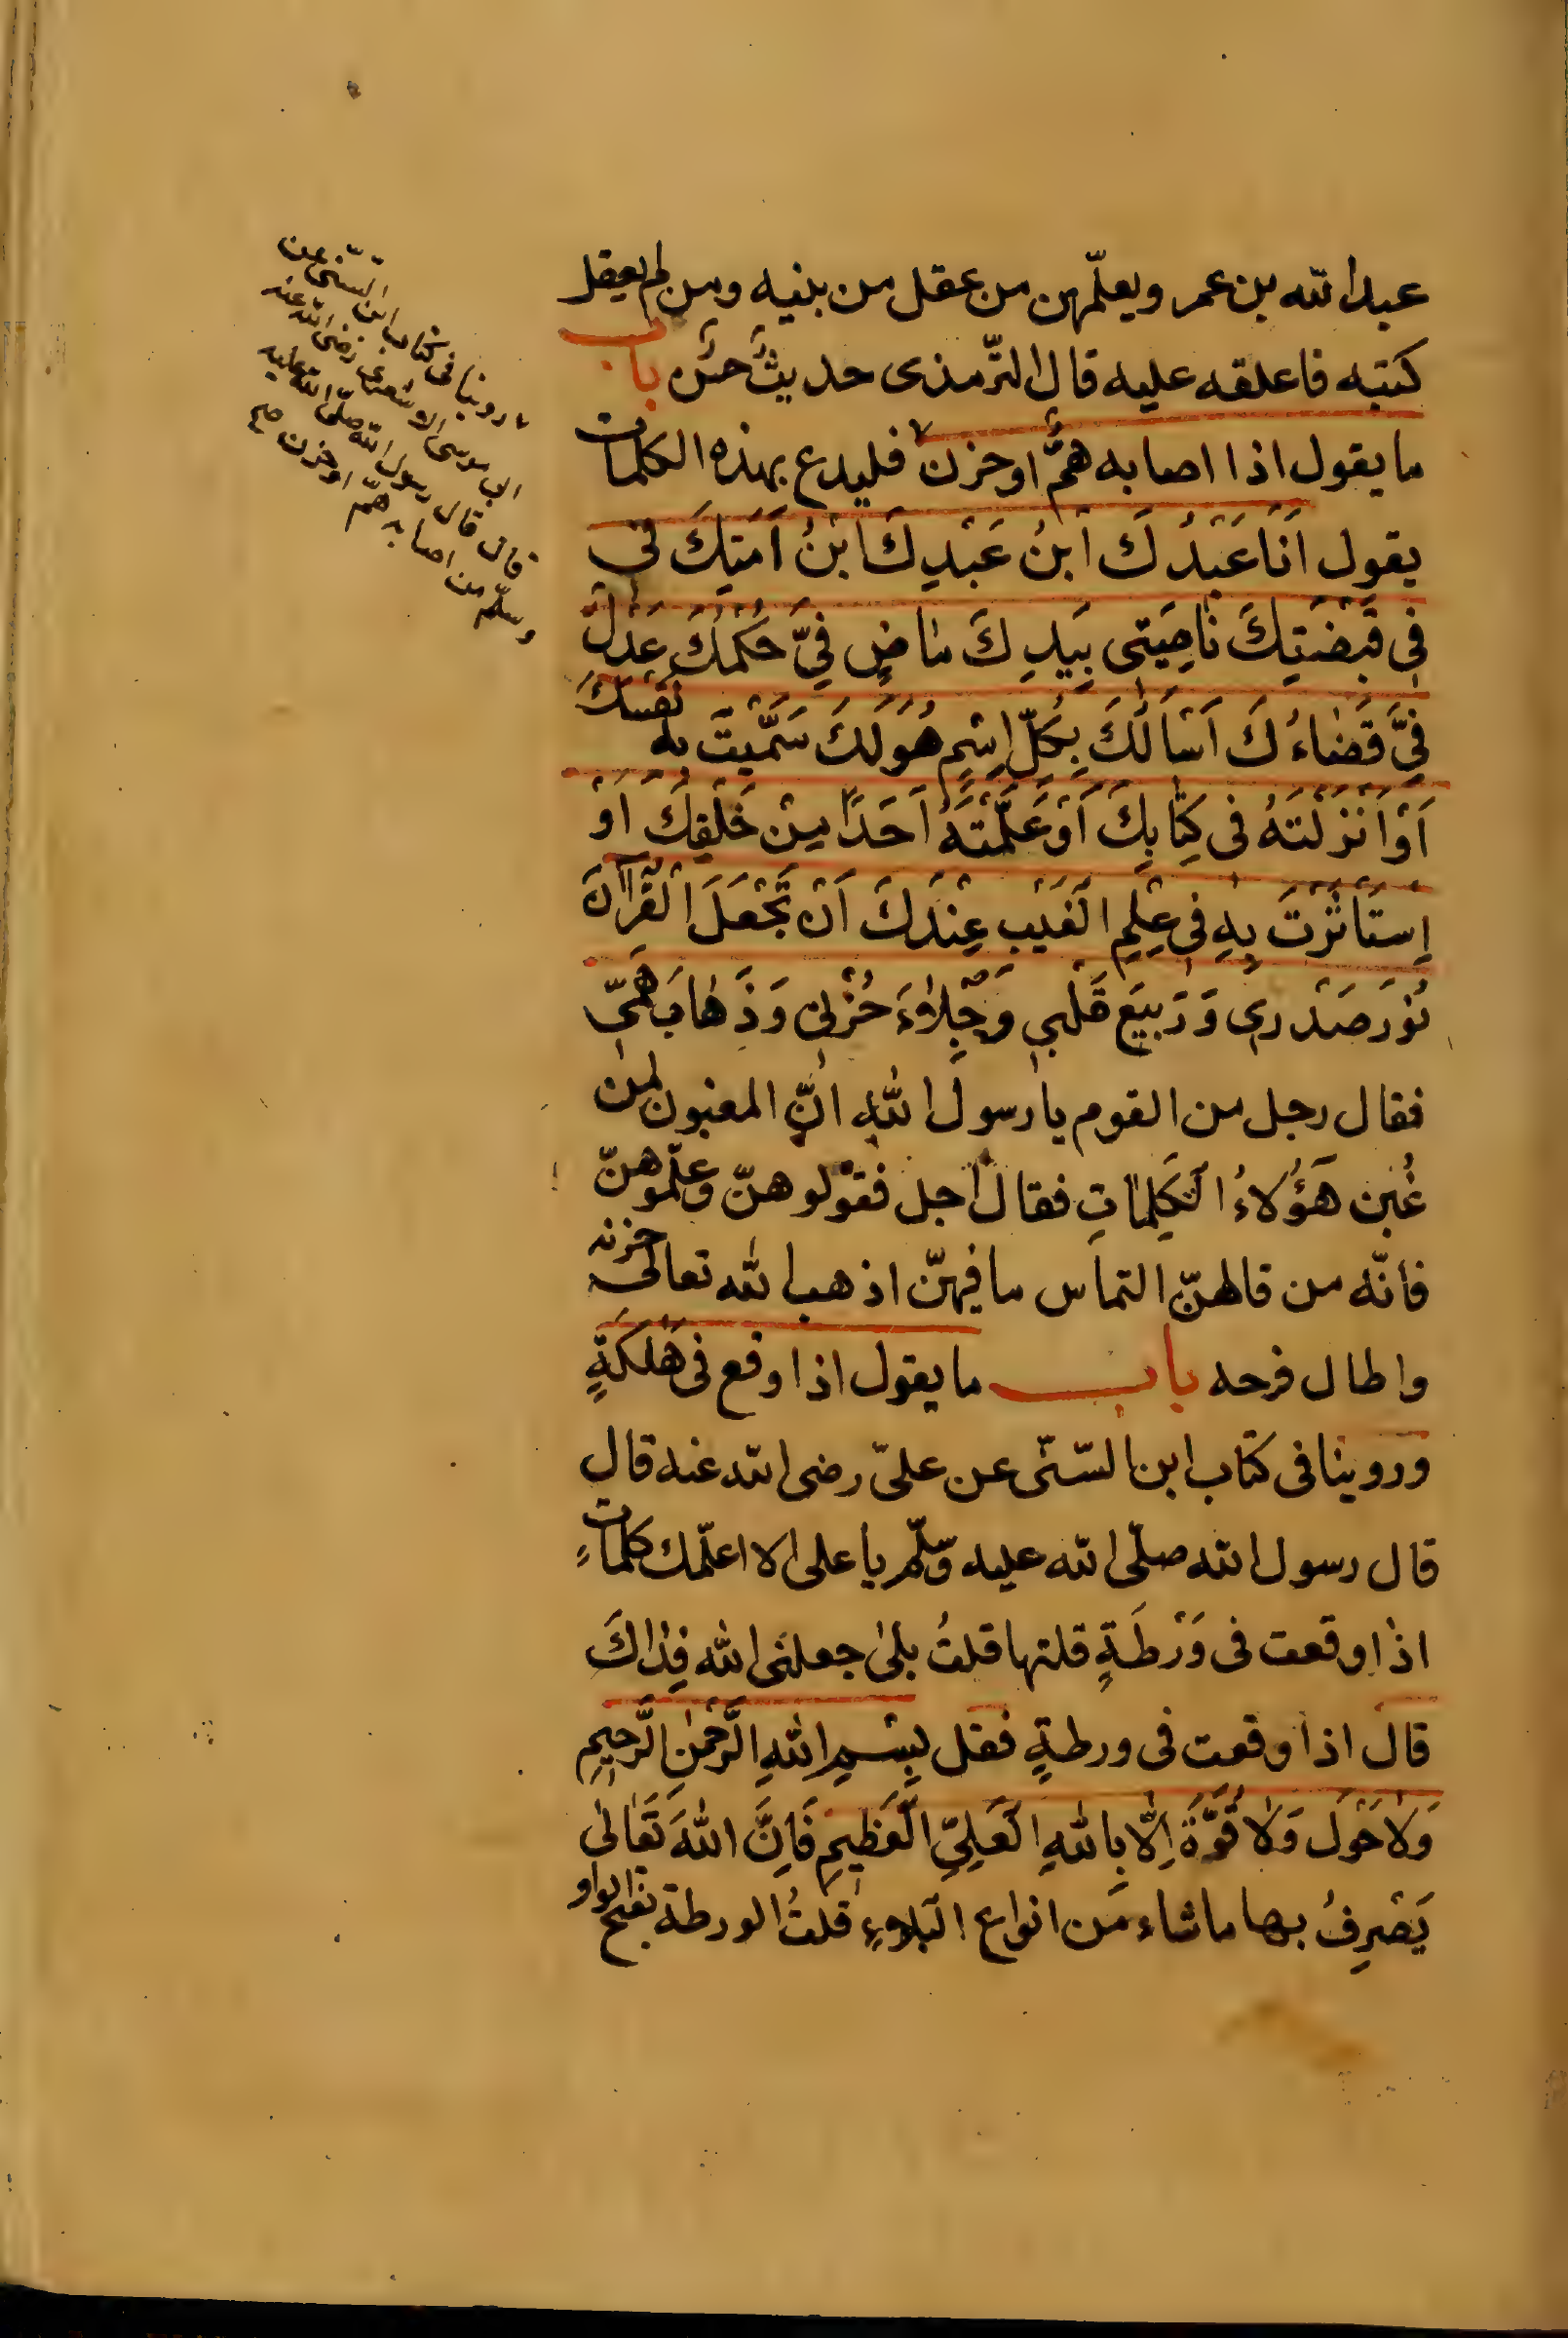 عبدالله بن عمر ويعلّمهن من عقل من بنيه ومن لم يعقل
كتبه فاعلقه عليه قال الترّمذى حديثٌ حسنٌ باب
ما يقول اذا اصابه همٌّ او حزن فليدع بهذه الكلمات
يقول اَنَا عَبْدُكَ اْبنُ عَبْدِكَ ابْنُ اَمَتِكَ فى
فى قَبْضَتِكَ نَاصِيَتى بِيَدِكَ مَاضٍ فِيَّ حُكْمُكَ عَدْلٌ
فِيَّ قَضَاءُكَ اَسْأَلُكَ بِكُلِّ اسْمٍ هُوَ لَكَ سَمَّيْتَ بِهِ نَفْسَكَ
اَوْ اَنْزَلْتَهُ فى كِتَابِكَ اَوْ عَلَّمْتَهُ اَحَدًا مِنْ خَلْقِكَ اَوْ
اِسْتَاْثَرْتَ بِهِ فى عِلْمِ الْغَيْبِ عِنْدَكَ اَنْ تَجْعَلَ الْقُرْآنَ
نُوْرَ صَدْرِى وَرَبِيَع قَلْبِى وَجِلَاءَ حُزْنِى وَذَهَابَ هَمِّى
فقال رجل من القوم يا رسول اللهِ انّ المغبون لمن
غُبِن هَؤُلَاءُ الْكَلِمَاتِ فقال اجل فقولوهنّ وعلّموهنّ
فانّه من قالهنّ التماس ما فيهنّ اذهب الله تعالى حزنه
واطال فرحه باب ما يقول اذا وقع فى هَلَكَةٍ
وروينا فى كتاب ابن السّنّى عن علىّ رضى الله عنه قال
قال رسول الله صلّى الله عليه وسلّم يا على الا اعلّمك كلماتٍ
اذا وقعت فى وَرْطَةٍ قلتها قلتُ بلىٰ جعلنى الله فِدَاكَ
قال اذا وقعت فى ورطةٍ فقل بِسْمِ اللهِ الرَّحْمٰنِ الرَّحِيمِ
وَلَا حَوْلَ وَلَا قُوَّةَ اِلَّا بِاللهِ الْعَلِىِّ الْعَظِيمِ فَاِنَّ اللهَ تَعَالٰى
يَصْرِفُ بها ما شاء من انواع الْبَلَاءِ قلتُ الورطة بفتح الواو
روينا فى كتاب ابن السّنّى عن
ابى موسى الاشعرى رضى الله عنه
قال قال رسول الله صلّى الله عليه
وسلّم من اصابه همّ او حزن صح